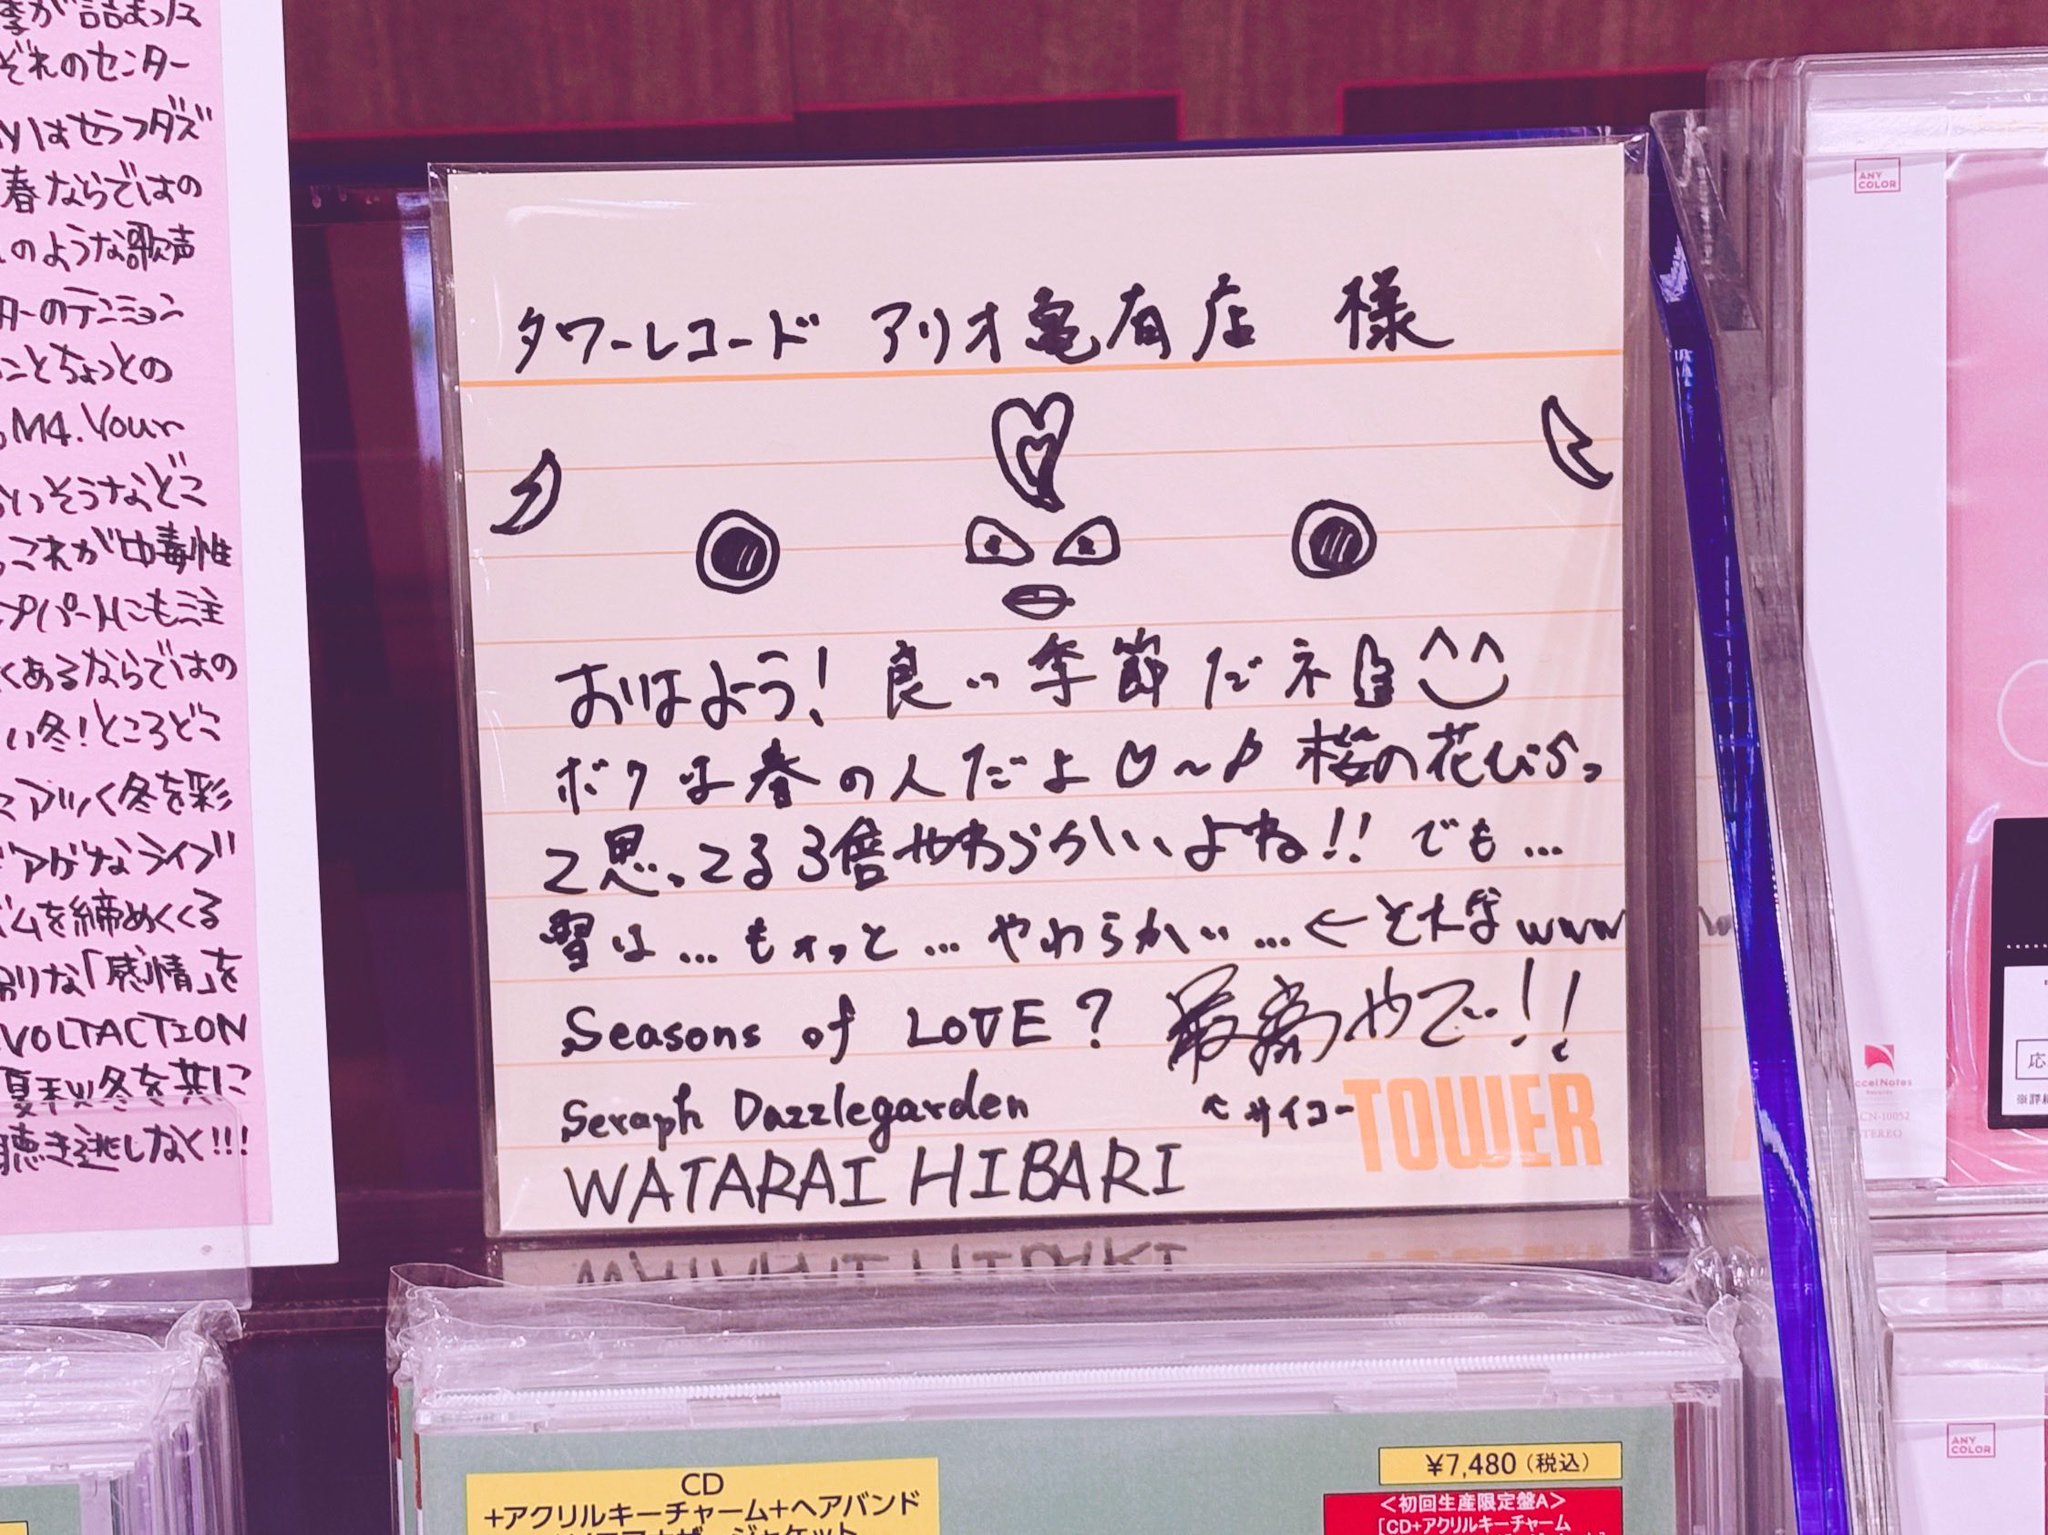 季が詰まった
ぞれのセンター
はセラフダズ
春ならではの
のような歌声
ターのテンション
ことちょっとの
M4.Your
いそうなどこ
これが中毒性
プパートにも注
くあるならではの
い冬!ところどこ
アツく冬を彩
アゲなライブ
ムを締めくくる
りな「感情」を
VOLTACTION
夏秋冬を共に
聴き逃しなく!!!
タワーレコード アリオ亀有店 様
おはよう! 良い季節だネ
ボクは春の人だよ♡~♪ 桜の花びらっ
て思ってる3倍やわらかいよね!! でも…
雪は…もォっと…やわらかい…←そんなwww
Seasons of LOVE? 最高やで!!
Seraph Dazzlegarden ↖サイコー
WATARAI HIBARI
TOWER
CD
+アクリルキーチャーム+ヘアバンド
¥7,480(税込)
<初回生産限定盤A>
[CD+アクリルキーチャーム
ANY
COLOR
ccelNotes
CN-10052
TEREO
応
※詳細
ANY
COLOR